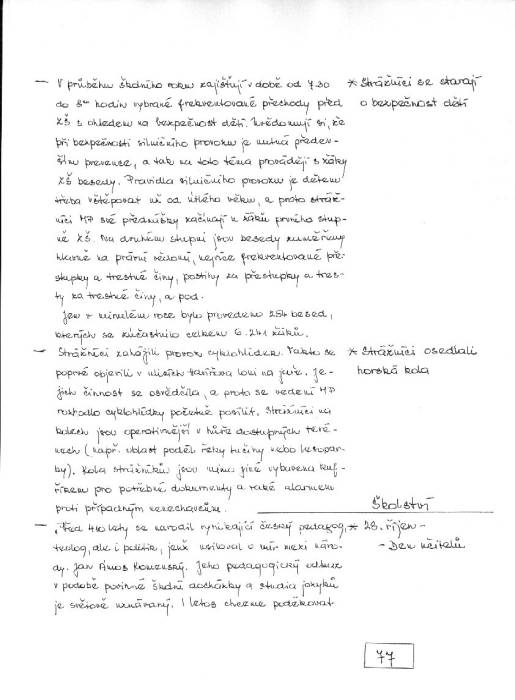 — V průběhu školního roku zajišťují v době od 7.30
do 8°° hodin vybrané frekventované přechody před
ZŠ s ohledem na bezpečnost dětí. Uvědomují si, že
při bezpečnosti silničního provozu je nutná přede-
vším prevence, a tak na toto téma provádějí s žáky
ZŠ besedy. Pravidla silničního provozu je dětem
třeba vštěpovat už od útlého věku, a proto stráž-
níci MP své přednášky začínají u žáků prvního stup-
ně ZŠ. Na druhém stupni jsou besedy zaměřeny
hlavně na právní vědomí, nejvíce frekventované pře-
stupky a trestné činy, postihy za přestupky a tres-
ty za trestné činy, a pod.
Jen v minulém roce bylo provedeno 254 besed,
kterých se zúčastnilo celkem 6.241 žáků.
— Strážníci zahájili provoz cyklohlídek. Takto se
poprvé objevili v ulicích Havířova loni na jaře. Je-
jich činnost se osvědčila, a proto se vedení MP
rozhodlo cyklohlídky početně posílit. Strážníci na
kolech jsou operativnější v hůře dostupných teré-
nech (např. oblast podél řeky Lučiny nebo lesopar-
ky). Kola strážníků jsou mimo jiné vybavena kuf-
říkem pro potřebné dokumenty a také alarmem
proti případným nenechavcům.
— „Před 410 lety se narodil vynikající český pedagog,
teolog, ale i politik, jenž usiloval o mír mezi náro-
dy. Jan Amos Komenský. Jeho pedagogický odkaz
v podobě povinné školní docházky a studia jazyků
je světově uznávaný. I letos chceme poděkovat
* Strážníci se starají
o bezpečnost dětí
* Strážníci osedlali
horská kola
Školství
* 28. říjen -
- Den učitelů
77